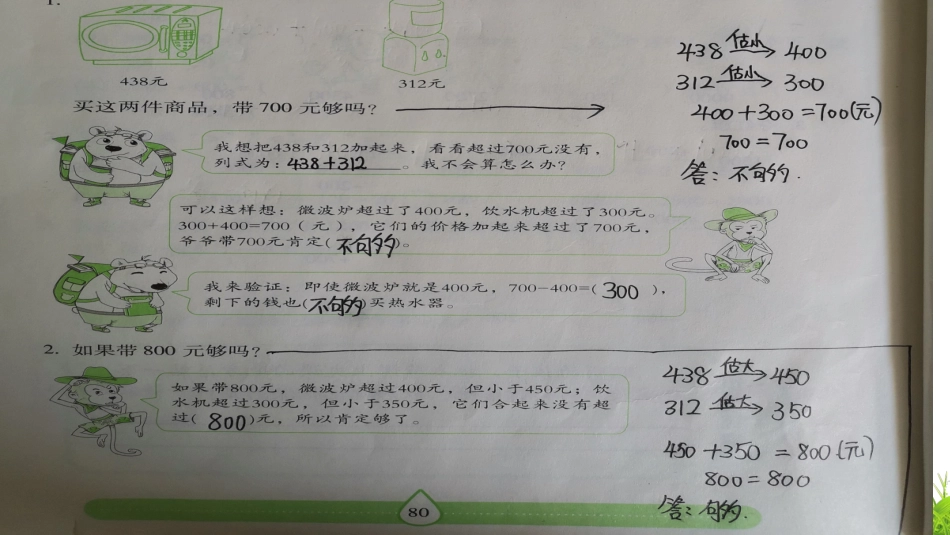 1.
438元
312元
买这两件商品，带 700 元够吗？
我想把438和312加起来，看看超过700元没有，
列式为：438+312。我不会算怎么办？
可以这样想：微波炉超过了400元，饮水机超过了300元。
300+400=700（元），它们的价格加起来超过了700元，
爷爷带700元肯定(不够)。
我来验证：即使微波炉就是400元，700-400=(300)，
剩下的钱也(不够)买热水器。
438 估小→ 400
312 估小→ 300
400+300=700(元)
700=700
答：不够.
2. 如果带 800 元够吗？
如果带800元，微波炉超过400元，但小于450元；饮
水机超过300元，但小于350元，它们合起来没有超
过(800)元，所以肯定够了。
438 估大→ 450
312 估大→ 350
450+350=800(元)
800=800
答：够.
80